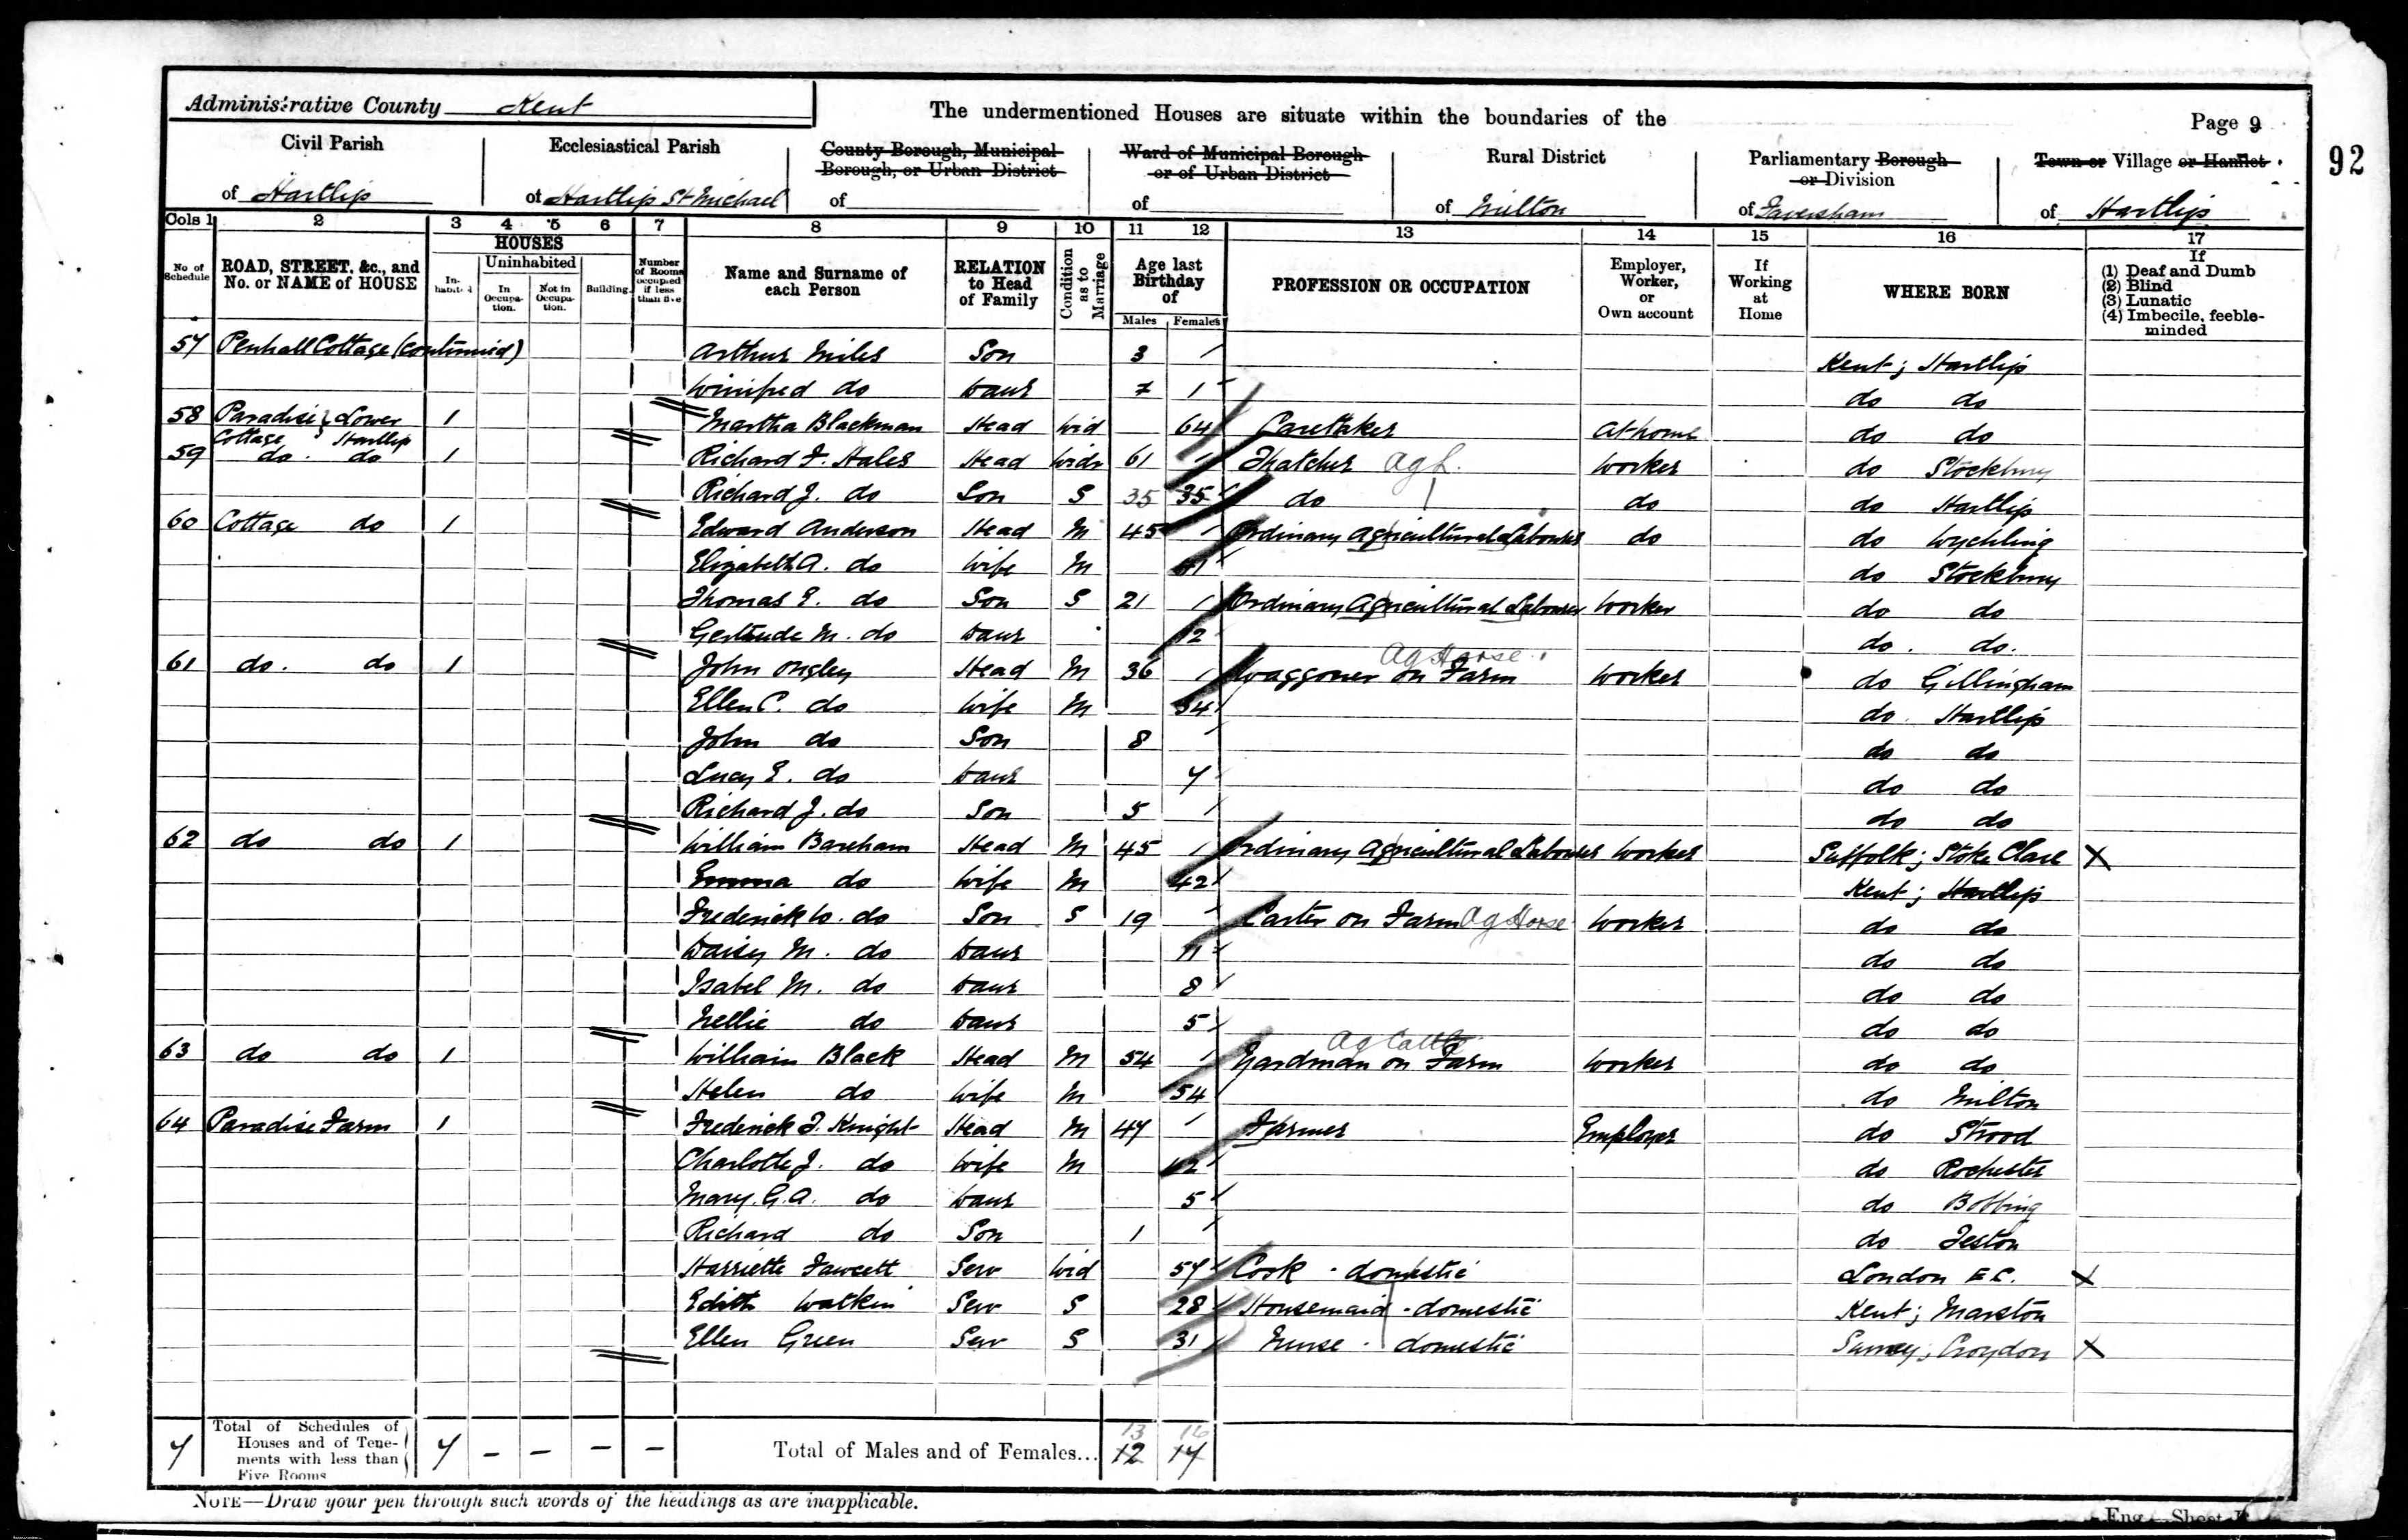 Administrative County Kent
The undermentioned Houses are situate within the boundaries of the
Page 9
92
Civil Parish of Hartlip
Ecclesiastical Parish of Hartlip St Michael
County Borough, Municipal Borough, or Urban District of
Ward of Municipal Borough or of Urban District of
Rural District of Milton
Parliamentary Borough or Division of Faversham
Town or Village or Hamlet of Hartlip
Cols 1 2 3 4 5 6 7 8 9 10 11 12 13 14 15 16 17
No of Schedule
ROAD, STREET, &c., and No. or NAME of HOUSE
HOUSES
Inhabited
Uninhabited
In Occupation.
Not in Occupation.
Building.
Number of Rooms occupied if less than five
Name and Surname of each Person
RELATION to Head of Family
Condition as to Marriage
Age last Birthday of
Males Females
PROFESSION OR OCCUPATION
Employer, Worker, or Own account
If Working at Home
WHERE BORN
If
(1) Deaf and Dumb
(2) Blind
(3) Lunatic
(4) Imbecile, feeble-minded
57 Penhall Cottage (continued) Arthur Miles Son 3 Kent; Hartlip
Winifred do Daur 1 do do
58 Paradise Cottage } Lower Hartlip 1 Martha Blackman Head Wid 64 Caretaker At home do do
59 do. do 1 Richard F. Hales Head Widr 61 Thatcher Worker do Stockbury
Richard J. do Son S 35 35 do do do Hartlip
60 Cottage do 1 Edward Anderson Head M 45 Ordinary Agricultural Labourer do do Wychling
Elizabeth A. do Wife M 41 do Stockbury
Thomas E. do Son S 21 Ordinary Agricultural Labourer Worker do do
Gertrude M. do Daur 12 do. do.
61 do. do 1 John Ongley Head M 36 Waggoner on Farm Ag Horse Worker do Gillingham
Ellen C. do Wife M 34 do. Hartlip
John do Son 8 do do
Lucy E. do Daur 7 do do
Richard J. do Son 5 do do
62 do do 1 William Bareham Head M 45 Ordinary Agricultural Labourer Worker Suffolk; Stoke Clare X
Emma do Wife M 42 Kent; Hartlip
Frederick W. do Son S 19 Carter on Farm Ag Horse Worker do do
Daisy M. do Daur 11 do do
Isabel M. do Daur 8 do do
Nellie do Daur 5 do do
63 do do 1 William Black Head M 54 Yardman on Farm Ag Cattle Worker do do
Helen do Wife M 54 do Milton
64 Paradise Farm 1 Frederick F. Knight Head M 47 Farmer Employer do Strood
Charlotte J. do Wife M 42 do Rochester
Mary. G. A. do Daur 5 do Bobbing
Richard do Son 1 do Teston
Harriette Fawcett Serv Wid 57 Cook - domestic London E.C. X
Edith Watkin Serv S 28 Housemaid - domestic Kent; Marston
Ellen Green Serv S 31 Nurse - domestic Surrey; Croydon X
7 Total of Schedules of Houses and of Tenements with less than Five Rooms 7 – – – – Total of Males and of Females... 13 12 16 17
NOTE—Draw your pen through such words of the headings as are inapplicable.
Eng.—Sheet